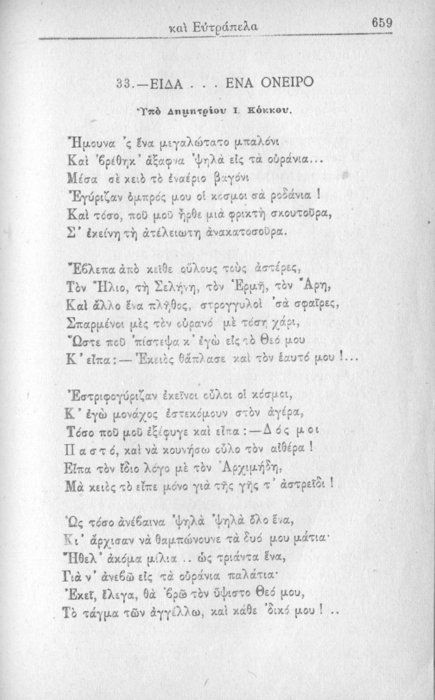 καὶ Εὐτράπελα
659
33.—ΕΙΔΑ . . . ΕΝΑ ΟΝΕΙΡΟ
Ὑπὸ Δημητρίου Ι. Κόκκου.
Ἤμουνα 'ς ἕνα μεγαλώτατο μπαλόνι
Καὶ 'βρέθηκ' ἄξαφνα 'ψηλὰ εἰς τὰ οὐράνια...
Μέσα σὲ κειὸ τὸ ἐναέριο βαγόνι
Ἐγύριζαν ὀμπρός μου οἱ κόσμοι σὰ ροδάνια !
Καὶ τόσο, ποῦ μοῦ ἦρθε μιὰ φρικτὴ σκουτοῦρα,
Σ' ἐκείνη τὴ ἀτέλειωτη ἀνακατοσοῦρα.
Ἔβλεπα ἀπὸ κεῖθε οὔλους τοὺς ἀστέρες,
Τὸν Ἥλιο, τὴ Σελήνη, τὸν Ἑρμῆ, τὸν Ἄρη,
Καὶ ἄλλο ἕνα πλῆθος, στρογγυλοὶ 'σὰ σφαῖρες,
Σπαρμένοι μὲς τὸν οὐρανὸ μὲ τόση χάρι,
Ὥστε ποῦ 'πίστεψα κ' ἐγὼ εἰς τὸ Θεό μου
Κ' εἶπα : — Ἐκειὸς θἄπλασε καὶ τὸν ἑαυτό μου !...
Ἐστριφογύριζαν ἐκεῖνοι οὖλοι οἱ κόσμοι,
Κ' ἐγὼ μονάχος ἐστεκόμουν στὸν ἀγέρα,
Τόσο ποῦ μοῦ ἐξέφυγε καὶ εἶπα :—Δός μοι
Παστό, καὶ νὰ κουνήσω οὖλο τὸν αἰθέρα !
Εἶπα τὸν ἴδιο λόγο μὲ τὸν Ἀρχιμήδη,
Μὰ κειὸς τὸ εἶπε μόνο γιὰ τῆς γῆς τ' ἀστρεῖδι !
Ὡς τόσο ἀνέβαινα 'ψηλὰ 'ψηλὰ ὅλο ἕνα,
Κι' ἄρχισαν νὰ θαμπώνουνε τὰ δυό μου μάτια·
Ἤθελ' ἀκόμα μίλια .. ὡς τριάντα ἕνα,
Γιὰ ν' ἀνεβῶ εἰς τὰ οὐράνια παλάτια·
Ἐκεῖ, ἔλεγα, θὰ 'βρῶ τὸν ὕψιστο Θεό μου,
Τὸ τάγμα τῶν ἀγγέλλω, καὶ κάθε 'δικό μου ! ..